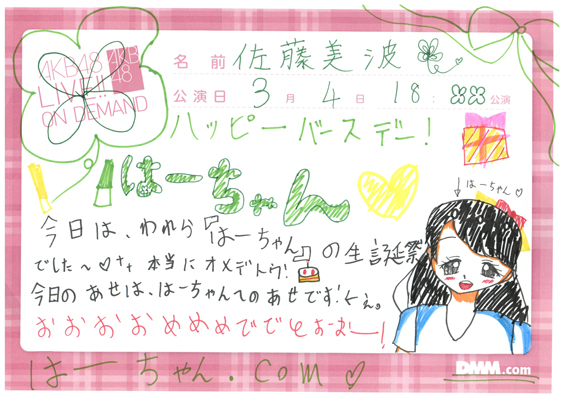 AKB48
LIVE!!
ON DEMAND
AKB
48
名前 佐藤美波
公演日 3月 4日 18: 公演
ハッピーバースデー!
はーちゃん
↓はーちゃん♡
今日は、われら『はーちゃん』の生誕祭
でした〜♡ 本当にオメデトウ!
今日のあせは、はーちゃんへのあせです!
おおおおめめめでで
はーちゃん.com♡
DMM.com